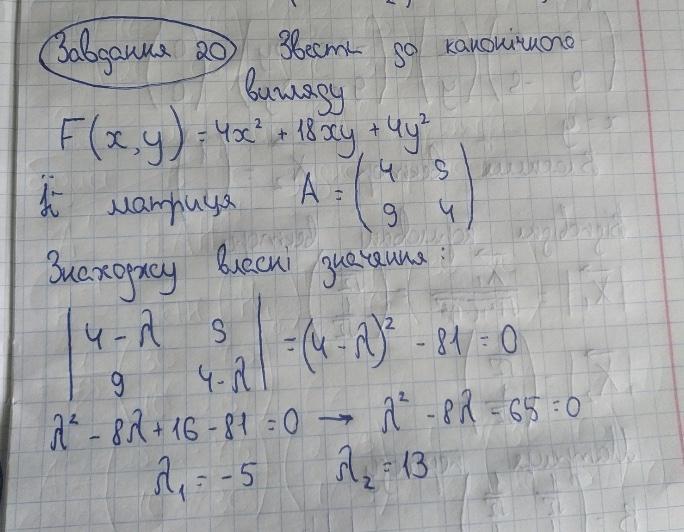 Завдання 20 Звести до канонічного
вигляду
F(x,y) = 4x² + 18xy + 4y²
Її матриця A = (4 9
9 4)
Знаходжу власні значення:
|4-λ 9
9 4-λ| = (4-λ)² - 81 = 0
λ² - 8λ + 16 - 81 = 0 → λ² - 8λ - 65 = 0
λ₁ = -5 λ₂ = 13